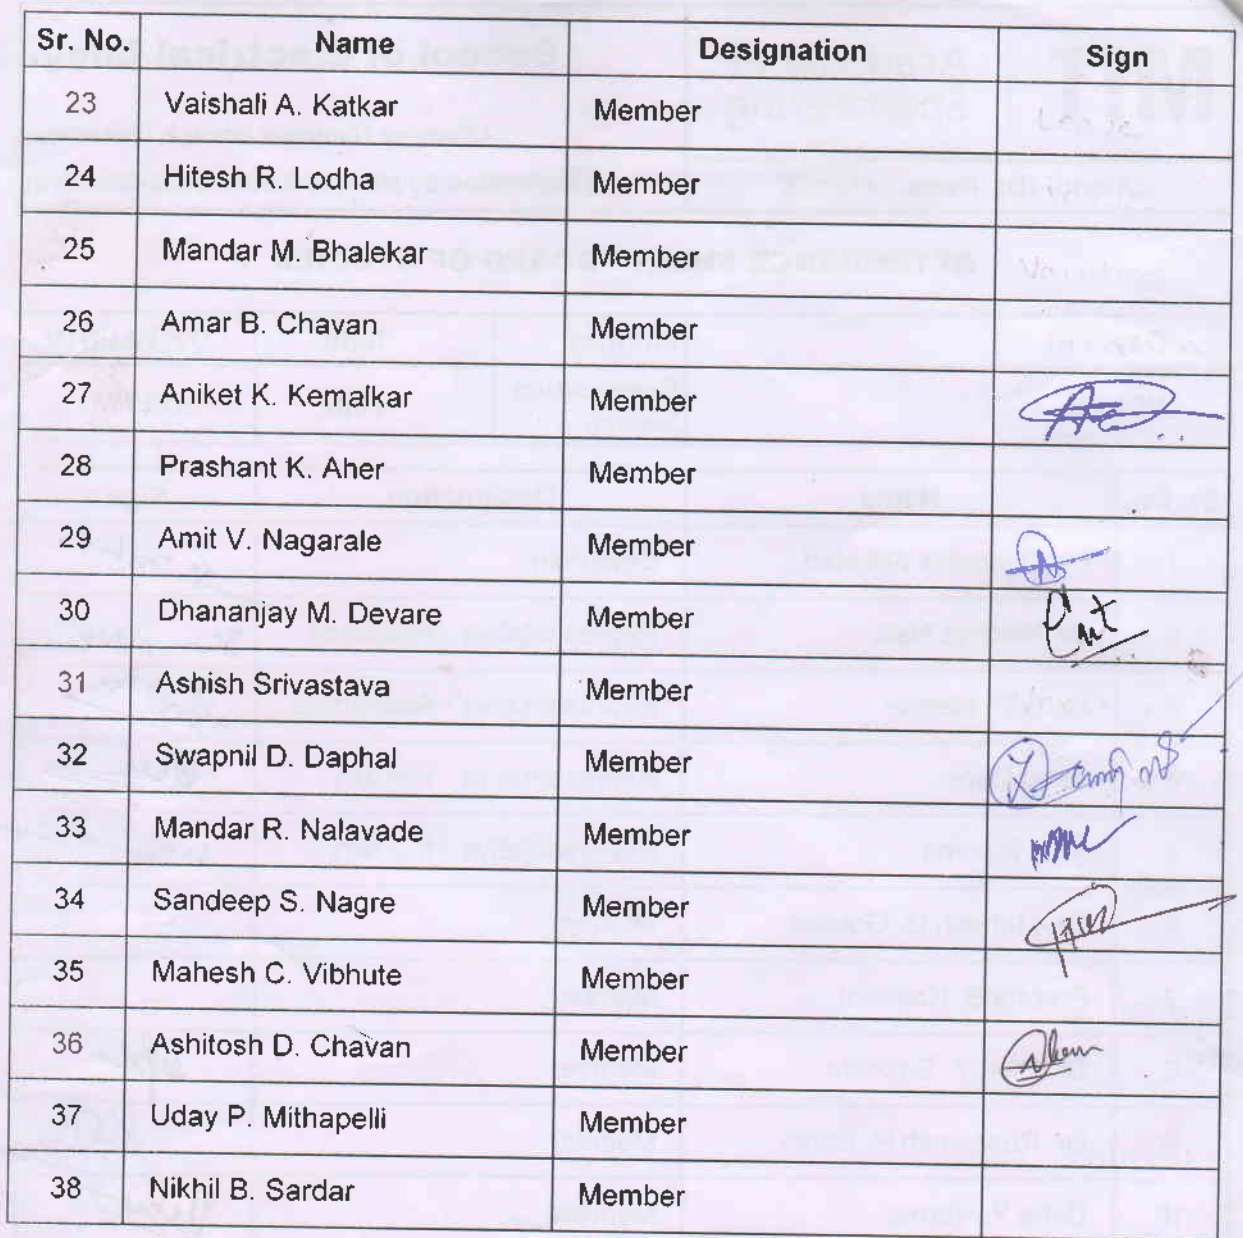 Sr. No. Name Designation Sign
23 Vaishali A. Katkar Member
24 Hitesh R. Lodha Member
25 Mandar M. Bhalekar Member
26 Amar B. Chavan Member
27 Aniket K. Kemalkar Member
28 Prashant K. Aher Member
29 Amit V. Nagarale Member
30 Dhananjay M. Devare Member
31 Ashish Srivastava Member
32 Swapnil D. Daphal Member
33 Mandar R. Nalavade Member
34 Sandeep S. Nagre Member
35 Mahesh C. Vibhute Member
36 Ashitosh D. Chavan Member
37 Uday P. Mithapelli Member
38 Nikhil B. Sardar Member